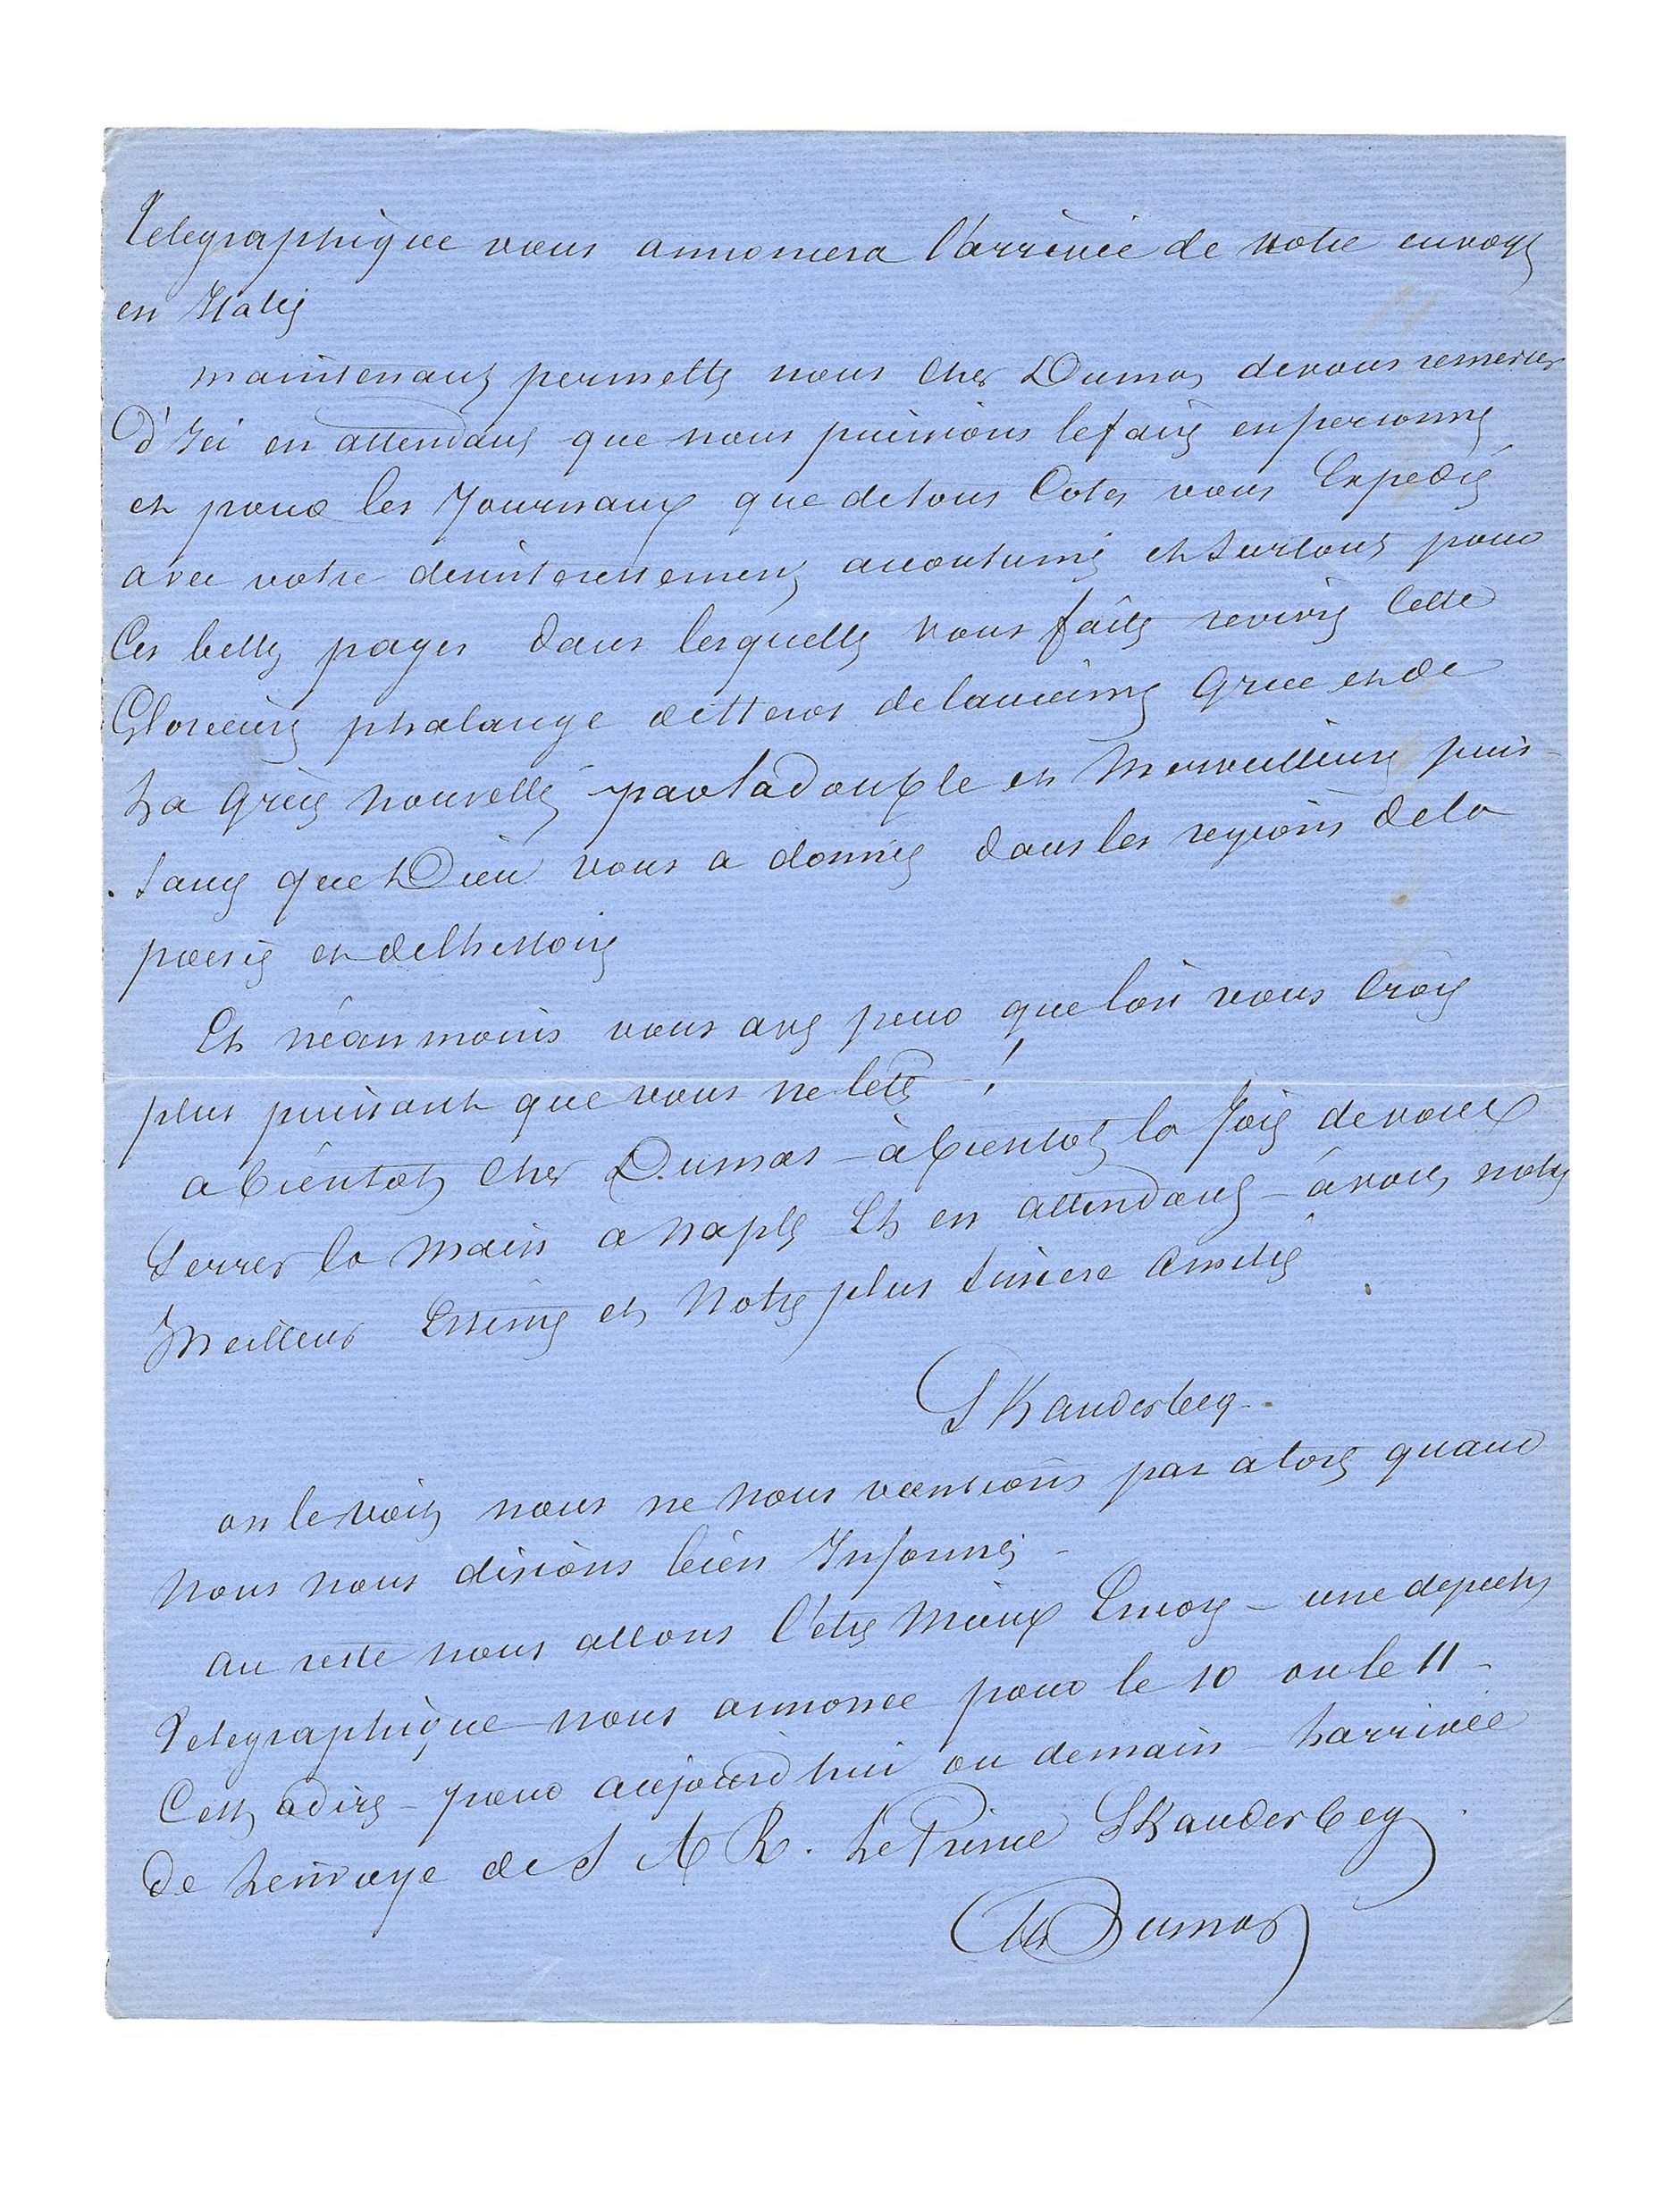 Telegraphique vous annoncera l'arrivée de notre envoyé
en Italie
maintenant permettez nous cher Dumas de vous remercier
d'Ici en attendant que nous puissions le faire en personne
et pour les Journaux que de tous Cotes vous Expedié
avec votre desinteressement accoutumé et surtout pour
Ces belles pages dans lesquelles vous faites revivre Cette
Glorieuse phalange de Heros de l'ancienne Grece et de
La Grèce nouvelle par la double et Merveilleuse puis-
sance que Dieu vous a donnée dans les regions de la
poesie et de l'histoire
Et néanmoins vous avez peur que l'on vous Croye
plus puissant que vous ne l'ete !
a bientot cher Dumas - à bientot la Joie de vous
Serrer la main a Naples Et en attendant - à vous notre
Meilleur Estime et Notre plus sincere Amitié
SKanderbeg -
on le voit nous ne nous vantions pas alors quand
Nous nous disions bien Informé -
au reste nous allons l'etre Mieux Encore - une depeche
Telegraphique nous annonce pour le 10 ou le 11 -
C'est a dire - pour aujourd'hui ou demain - L'arrivée
de L'envoye de S A R. Le Prince SKanderbeg
Alex Dumas